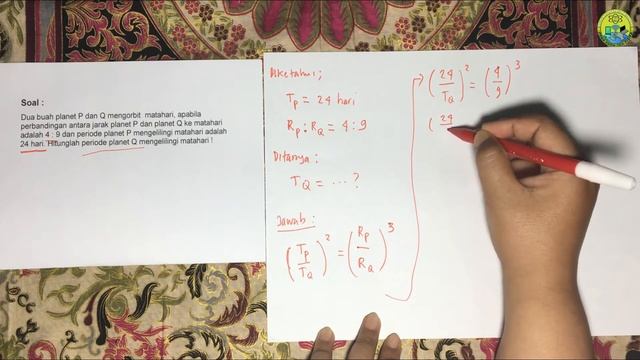 Soal :
Dua buah planet P dan Q mengorbit matahari, apabila
perbandingan antara jarak planet P dan planet Q ke matahari
adalah 4 : 9 dan periode planet P mengelilingi matahari adalah
24 hari. Hitunglah periode planet Q mengelilingi matahari !
Diketahui ;
T_P = 24 hari
R_P : R_Q = 4 : 9
Ditanya :
T_Q = ... ?
Jawab :
(T_P/T_Q)^2 = (R_P/R_Q)^3
(24/T_Q)^2 = (4/9)^3
(24